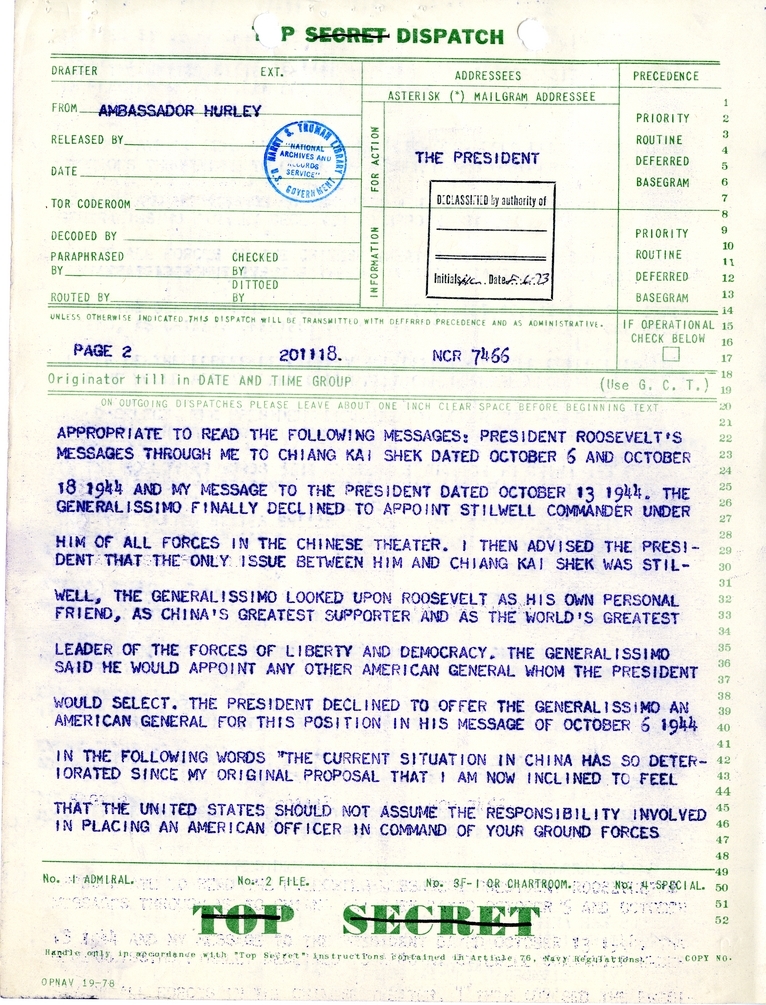 TOP SECRET DISPATCH
DRAFTER EXT.
FROM AMBASSADOR HURLEY
RELEASED BY
DATE
TOR CODEROOM
DECODED BY
PARAPHRASED BY CHECKED BY
DITTOED BY
ROUTED BY
HARRY S. TRUMAN LIBRARY
"NATIONAL
ARCHIVES AND
RECORDS
SERVICE"
U.S. GOVERNMENT
ADDRESSEES
ASTERISK (*) MAILGRAM ADDRESSEE
FOR ACTION
THE PRESIDENT
INFORMATION
DECLASSIFIED by authority of
Initials Date
PRECEDENCE
PRIORITY
ROUTINE
DEFERRED
BASEGRAM
PRIORITY
ROUTINE
DEFERRED
BASEGRAM
UNLESS OTHERWISE INDICATED THIS DISPATCH WILL BE TRANSMITTED WITH DEFERRED PRECEDENCE AND AS ADMINISTRATIVE.
IF OPERATIONAL
CHECK BELOW
PAGE 2 201118. NCR 7466
Originator fill in DATE AND TIME GROUP (Use G. C. T.)
ON OUTGOING DISPATCHES PLEASE LEAVE ABOUT ONE INCH CLEAR SPACE BEFORE BEGINNING TEXT
APPROPRIATE TO READ THE FOLLOWING MESSAGES: PRESIDENT ROOSEVELT'S
MESSAGES THROUGH ME TO CHIANG KAI SHEK DATED OCTOBER 6 AND OCTOBER
18 1944 AND MY MESSAGE TO THE PRESIDENT DATED OCTOBER 13 1944. THE
GENERALISSIMO FINALLY DECLINED TO APPOINT STILWELL COMMANDER UNDER
HIM OF ALL FORCES IN THE CHINESE THEATER. I THEN ADVISED THE PRESI-
DENT THAT THE ONLY ISSUE BETWEEN HIM AND CHIANG KAI SHEK WAS STIL-
WELL, THE GENERALISSIMO LOOKED UPON ROOSEVELT AS HIS OWN PERSONAL
FRIEND, AS CHINA'S GREATEST SUPPORTER AND AS THE WORLD'S GREATEST
LEADER OF THE FORCES OF LIBERTY AND DEMOCRACY. THE GENERALISSIMO
SAID HE WOULD APPOINT ANY OTHER AMERICAN GENERAL WHOM THE PRESIDENT
WOULD SELECT. THE PRESIDENT DECLINED TO OFFER THE GENERALISSIMO AN
AMERICAN GENERAL FOR THIS POSITION IN HIS MESSAGE OF OCTOBER 6 1944
IN THE FOLLOWING WORDS "THE CURRENT SITUATION IN CHINA HAS SO DETER-
IORATED SINCE MY ORIGINAL PROPOSAL THAT I AM NOW INCLINED TO FEEL
THAT THE UNITED STATES SHOULD NOT ASSUME THE RESPONSIBILITY INVOLVED
IN PLACING AN AMERICAN OFFICER IN COMMAND OF YOUR GROUND FORCES
1
2
3
4
5
6
7
8
9
10
11
12
13
14
15
16
17
18
19
20
21
22
23
24
25
26
27
28
29
30
31
32
33
34
35
36
37
38
39
40
41
42
43
44
45
46
47
48
49
50
51
52
No. 1 ADMIRAL. No. 2 FILE. No. 3F-1 OR CHARTROOM. No. 4 SPECIAL.
TOP SECRET
Handle only in accordance with "Top Secret" instructions contained in Article 76, Navy Regulations. COPY NO.
OPNAV 19-78